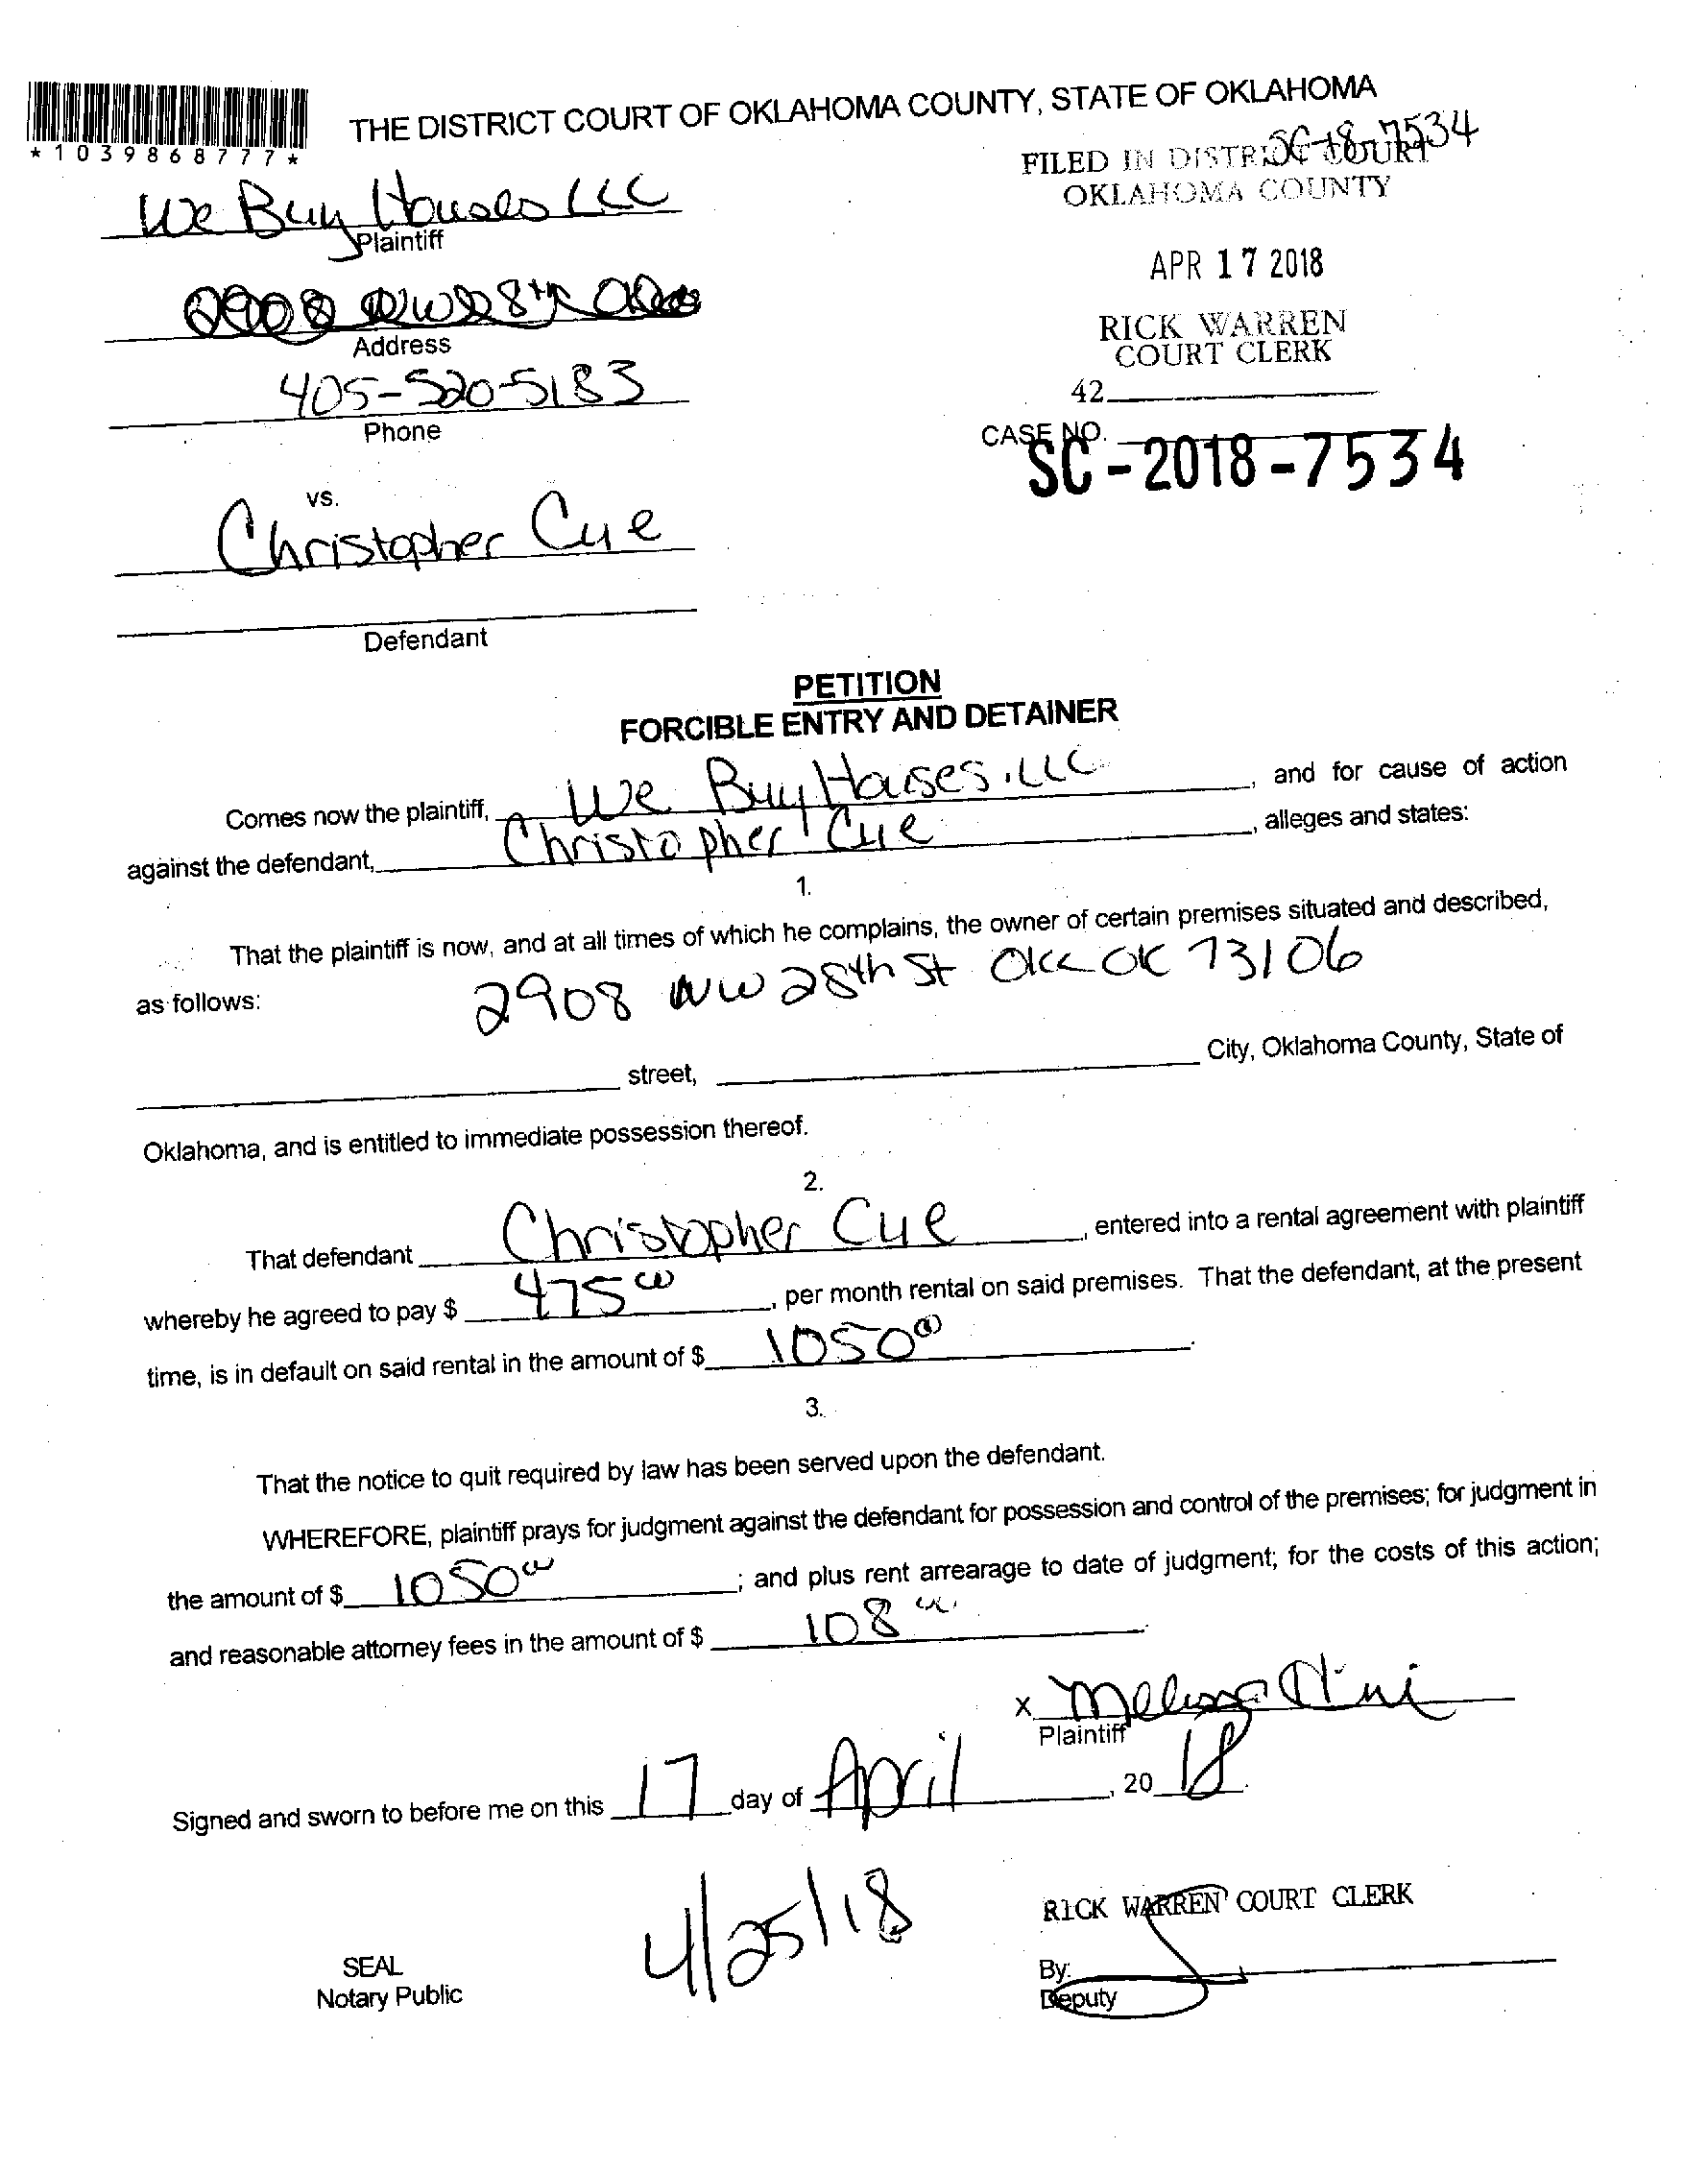 THE DISTRICT COURT OF OKLAHOMA COUNTY, STATE OF OKLAHOMA
*1039868777*
SC-18-7534
FILED IN DISTRICT COURT
OKLAHOMA COUNTY
We Buy Houses LLC
Plaintiff
APR 17 2018
2908 NW 28th
Address
RICK WARREN
COURT CLERK
405-520-5183
42
Phone
CASE NO.
SC-2018-7534
vs.
Christopher Cue
Defendant
PETITION
FORCIBLE ENTRY AND DETAINER
Comes now the plaintiff, We Buy Houses, LLC, and for cause of action
against the defendant, Christopher Cue, alleges and states:
1.
That the plaintiff is now, and at all times of which he complains, the owner of certain premises situated and described,
as follows: 2908 NW 28th St OKC OK 73106
street, City, Oklahoma County, State of
Oklahoma, and is entitled to immediate possession thereof.
2.
That defendant Christopher Cue, entered into a rental agreement with plaintiff
whereby he agreed to pay $ 475 00, per month rental on said premises. That the defendant, at the present
time, is in default on said rental in the amount of $ 1050 00.
3.
That the notice to quit required by law has been served upon the defendant.
WHEREFORE, plaintiff prays for judgment against the defendant for possession and control of the premises; for judgment in
the amount of $ 1050 00; and plus rent arrearage to date of judgment; for the costs of this action;
and reasonable attorney fees in the amount of $ 108 00.
x Melissa
Plaintiff
Signed and sworn to before me on this 17 day of April, 20 18.
4/25/18
RICK WARREN COURT CLERK
SEAL
Notary Public
By:
Deputy